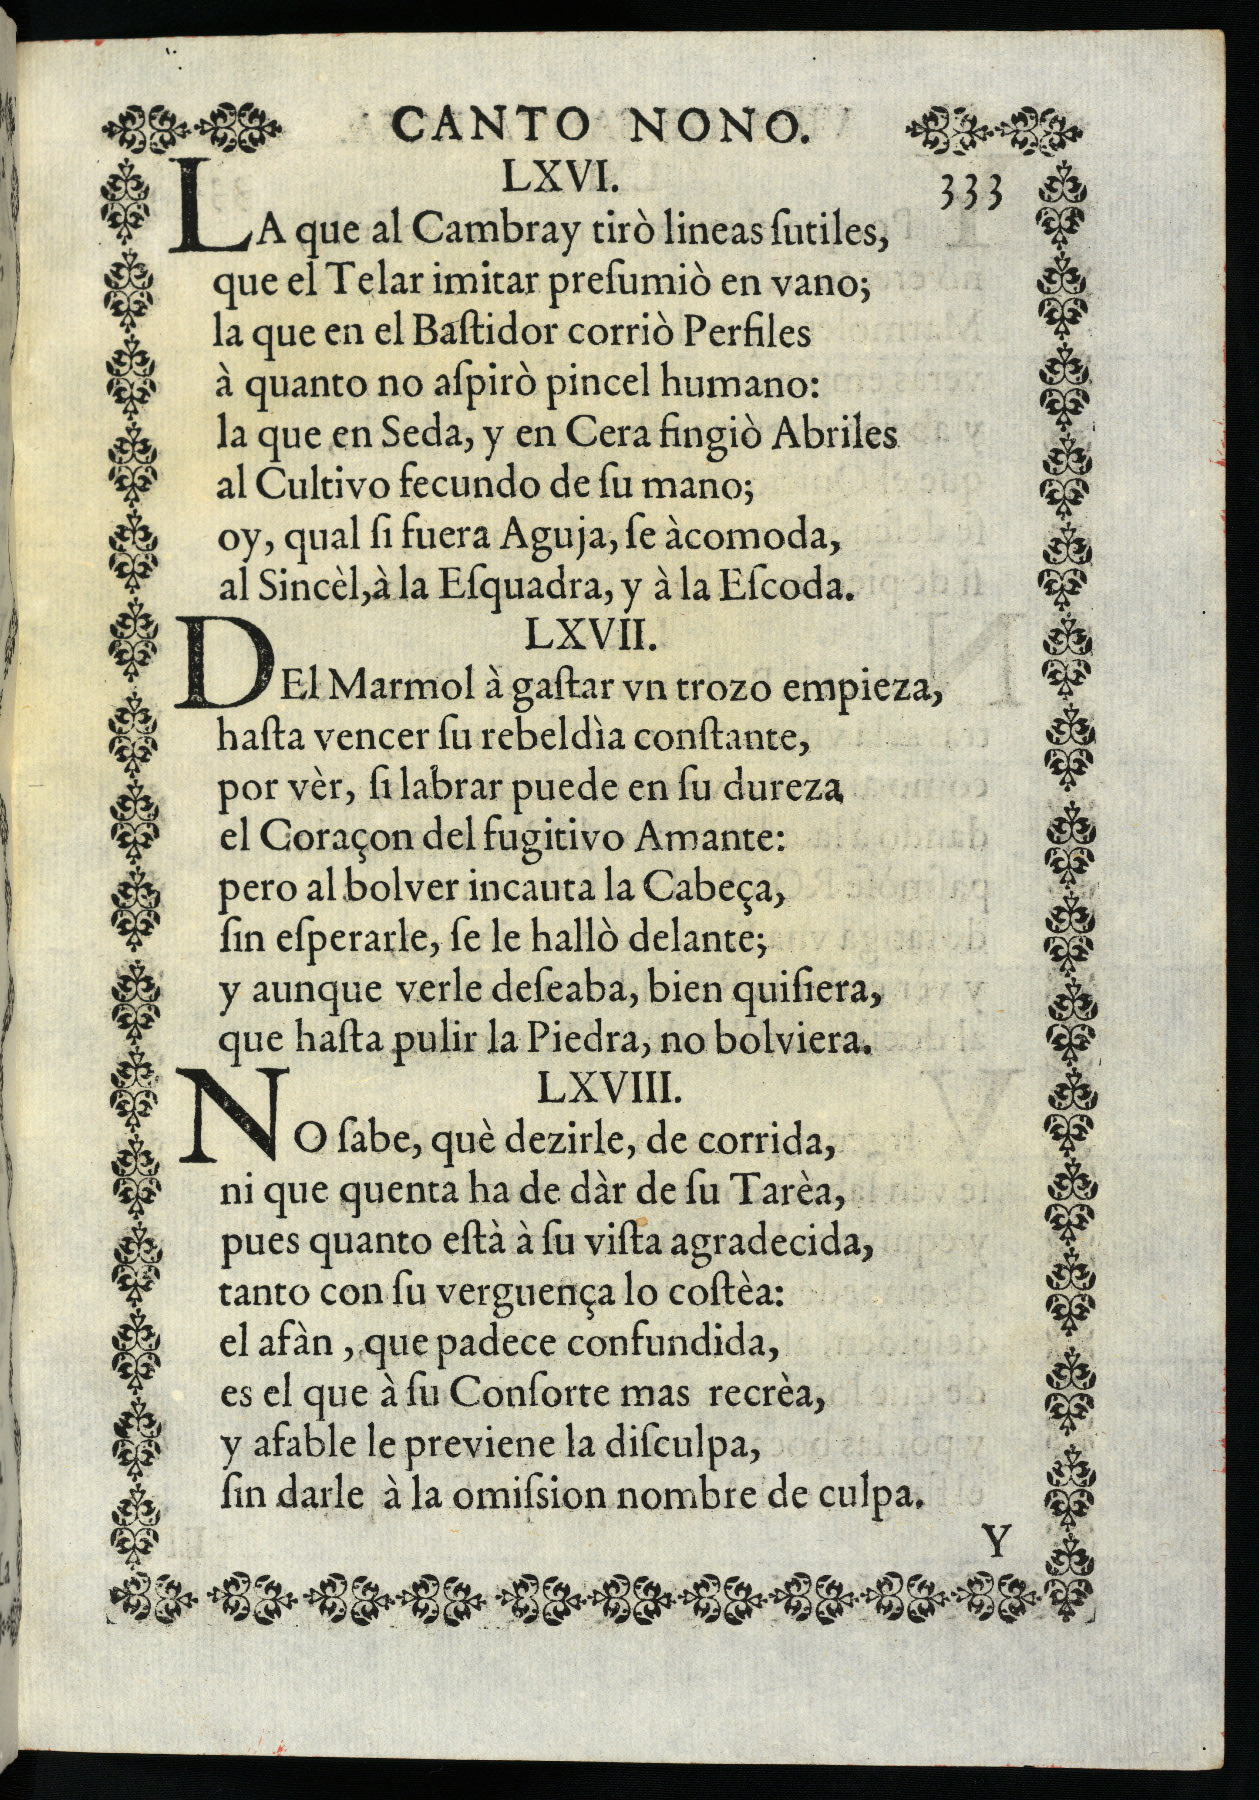 CANTO NONO.
333
LXVI.
LA que al Cambray tirò lineas ſutiles,
que el Telar imitar preſumiò en vano;
la que en el Baſtidor corriò Perfiles
à quanto no aſpirò pincel humano:
la que en Seda, y en Cera fingiò Abriles
al Cultivo fecundo de ſu mano;
oy, qual ſi fuera Aguja, ſe àcomoda,
al Sincèl, à la Eſquadra, y à la Eſcoda.
LXVII.
DEl Marmol à gaſtar vn trozo empieza,
haſta vencer ſu rebeldìa conſtante,
por vèr, ſi labrar puede en ſu dureza
el Coraçon del fugitivo Amante:
pero al bolver incauta la Cabeça,
ſin eſperarle, ſe le hallò delante;
y aunque verle deſeaba, bien quiſiera,
que haſta pulir la Piedra, no bolviera.
LXVIII.
NO ſabe, què dezirle, de corrida,
ni que quenta ha de dàr de ſu Tarèa,
pues quanto eſtà à ſu viſta agradecida,
tanto con ſu verguença lo coſtèa:
el afàn, que padece confundida,
es el que à ſu Conſorte mas recrèa,
y afable le previene la diſculpa,
ſin darle à la omiſsion nombre de culpa.
Y